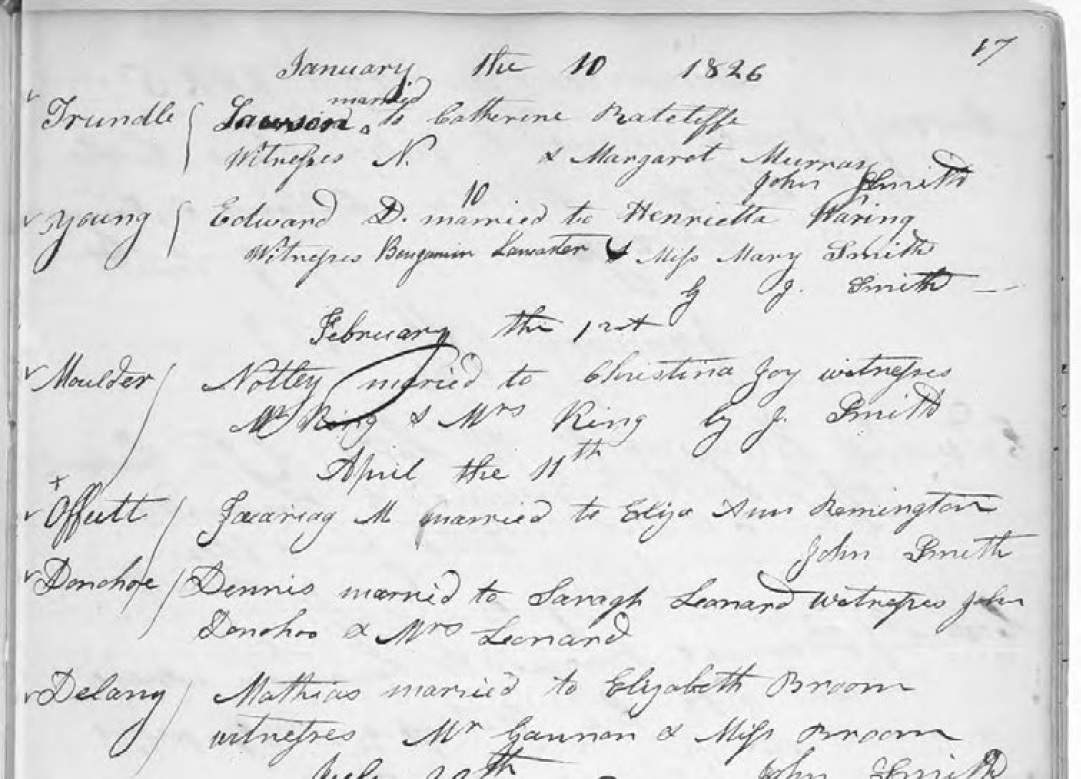 17
January the 10 1826
Trundle Lawson married to Catherine Ratcliffe
Witnesses N. & Margaret Murray
John Smith
Young Edward D. married to Henrietta Waring
10
Witnesses Benjamin Lancaster & Miss Mary Smith
G J. Smith
February the 1st
Moulder Notley married to Christina Joy witnesses
Mr King & Mrs King G J. Smith
April the 11th
Offutt M married to Eliza Ann Remington
John Smith
Donohoe Dennis married to Saragh Leonard witnesses John
Donohoo & Mrs Leonard
Delany Mathias married to Elizabeth Broom
witnesses Mr Gannon & Miss Broom
John Smith